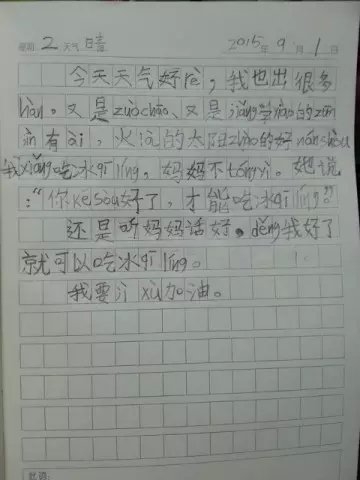 星期 2 天气 日音 2015年 9月 1日
今天天气好rè，我也出很多
hàn。又是zuòchāo、又是
有ài，火 的太阳 的好nánshòu
我xiǎng吃冰qílíng，妈妈不tóngyì。她说
：“你késòu好了，才能吃冰qílíng。”
还是听妈妈话好。děng我好了
就可以吃冰qílíng。
我要jì xù加油。
批语：